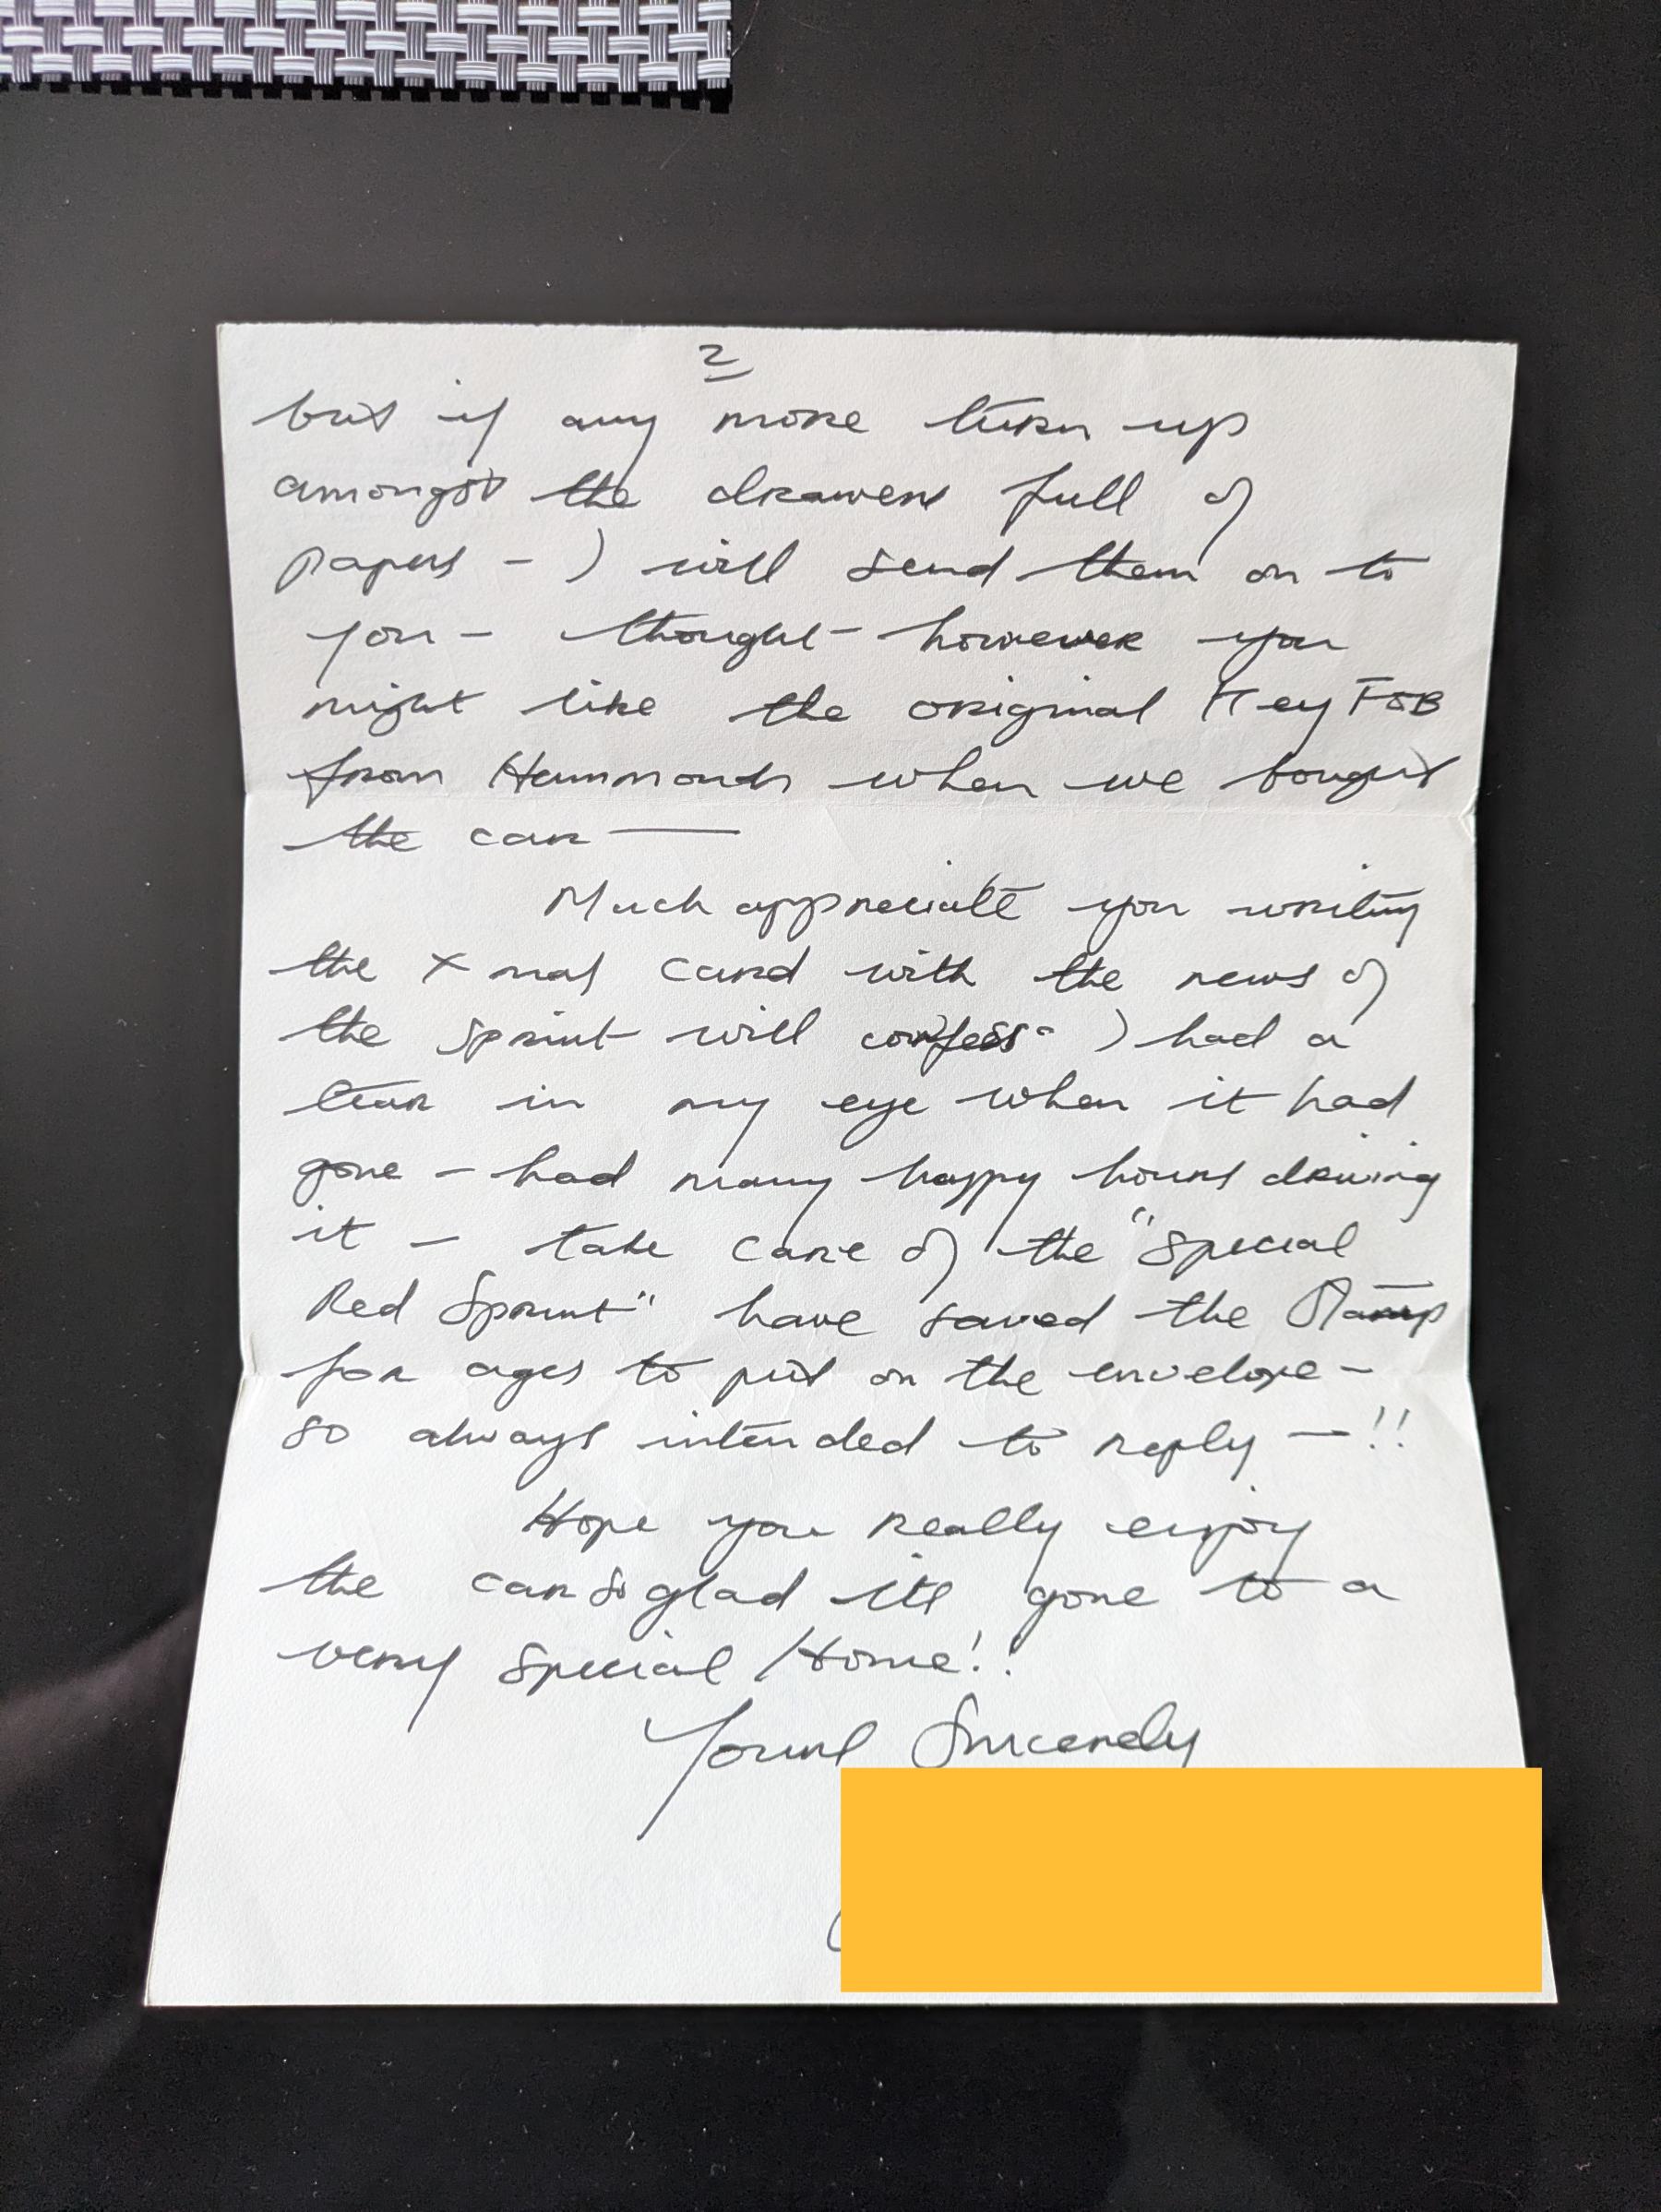 2
but if any more turn up
amongst the drawers full of
papers - I will send them on to
you - thought - however you
might like the original Key FOB
from Hammonds when we bought
the car —
Much appreciate you writing
the Xmas card with the news of
the sprint will confess - I had a
tear in my eye when it had
gone - had many happy hours driving
it - take care of the "Special
Red Sprint" have saved the Stamp
for ages to put on the envelope -
so always intended to reply —!!
Hope you really enjoy
the car so glad its gone to a
very special Home!!
Yours Sincerely